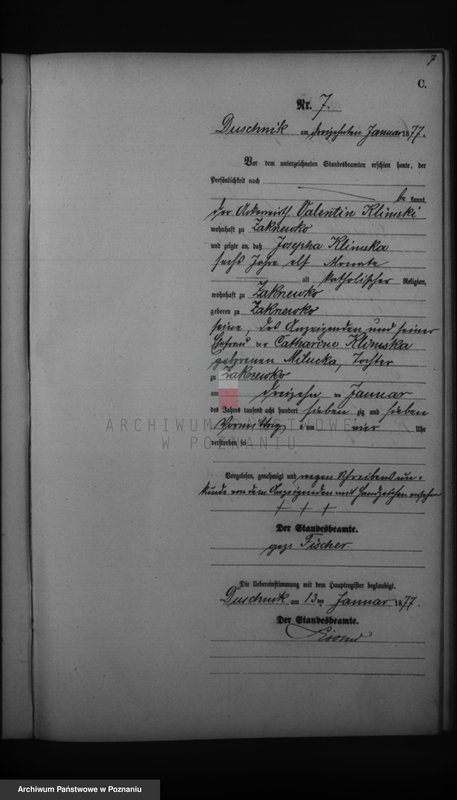 7
C.
Nr. 7.
Duschnik am dreizehnten Januar 1877.
Vor dem unterzeichneten Standesbeamten erschien heute, der
Persönlichkeit nach
be kannt,
der Ackerwirth Valentin Klimski
wohnhaft zu Zakrzewko
und zeigte an, daß Josepha Klimska
sechs Jahre elf Monate
alt katholischer Religion,
wohnhaft zu Zakrzewko
geboren zu Zakrzewko
seine, des Anzeigenden und seiner
Ehefrau Catharine Klimska
geborenen Milucka, Tochter
zu Zakrzewko
am dreizehn ten Januar
des Jahres tausend acht hundert sieben zig und sieben
Vormittag s um vier Uhr
verstorben sei
ARCHIWUM PAŃSTWOWE
W POZNANIU
Vorgelesen, genehmigt und wegen Schreibensun-
kunde von dem Anzeigenden mit Handzeichen versehen
+ + +
Der Standesbeamte.
gez. Fischer
Die Uebereinstimmung mit dem Hauptregister beglaubigt.
Duschnik am 13 ten Januar 1877.
Der Standesbeamte.
Archiwum Państwowe w Poznaniu